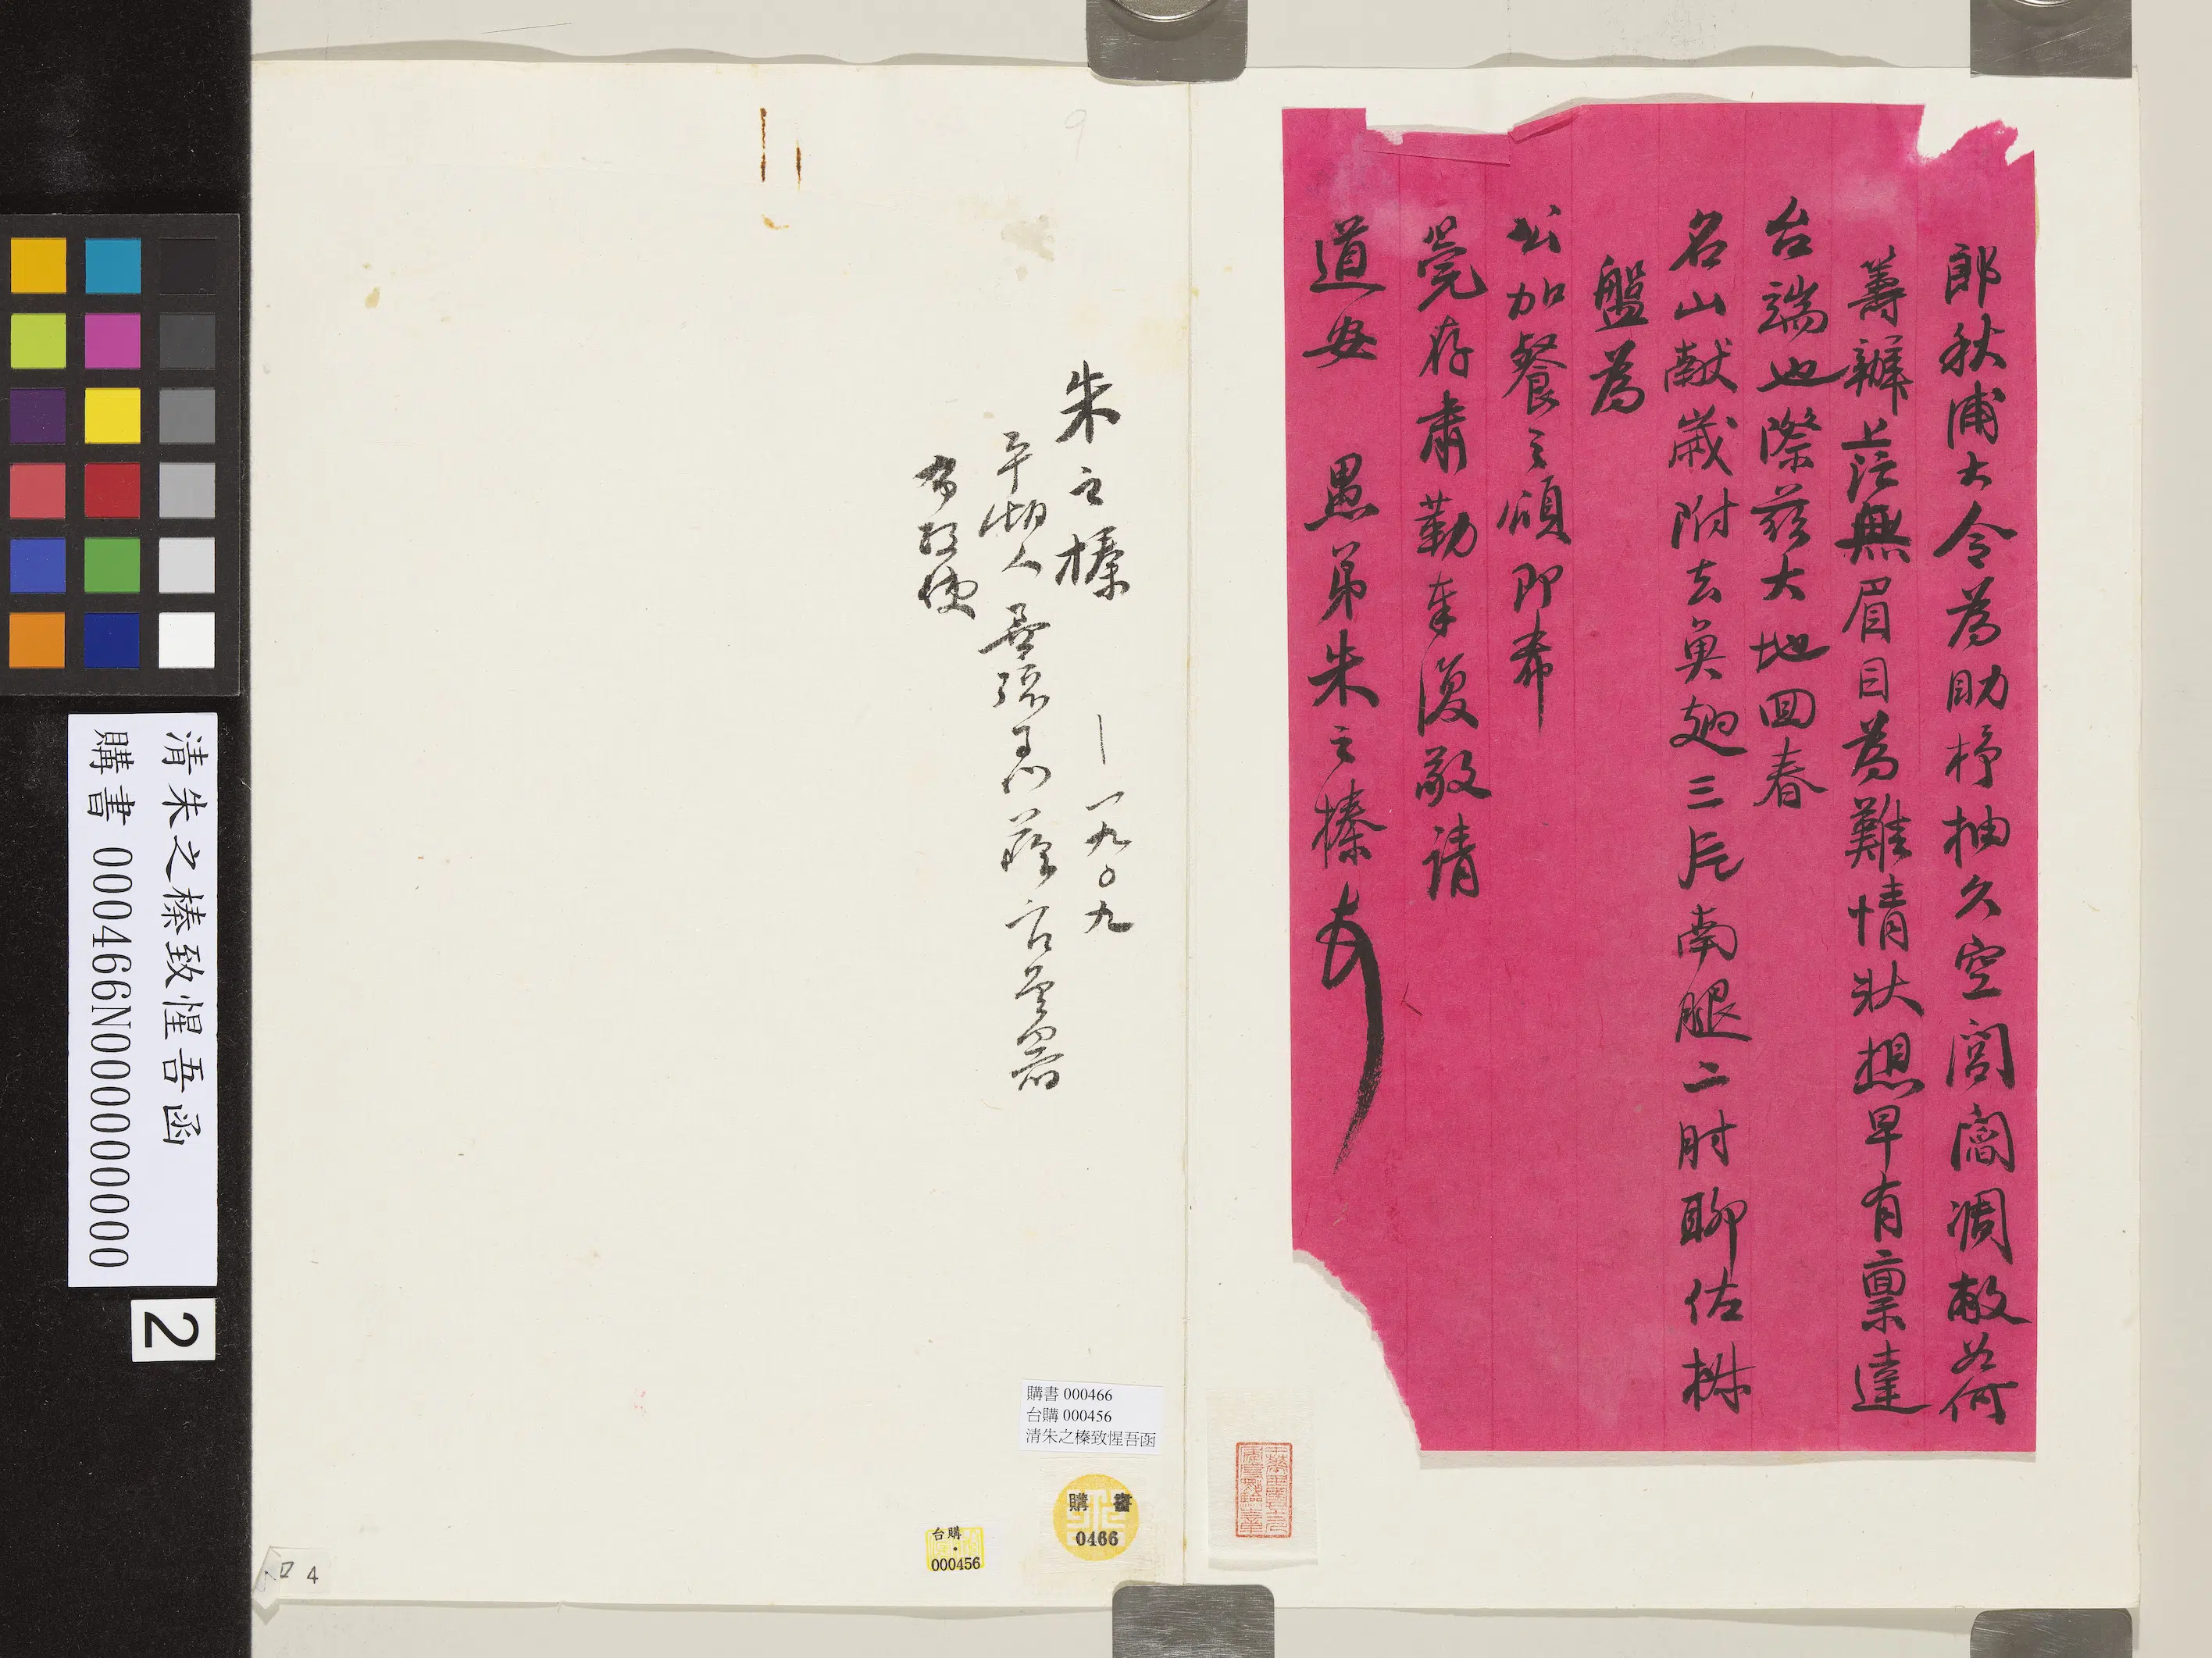 郎秋浦大令為助杼柚久空閭閻凋敝如何
籌辦茫無眉目為難情狀想早有稟達
台端也際茲大地回春
名山獻歲附去魚翅三片南腿二肘聊佐椒
盤為
公加餐之頌即希
莞存肅勤奉復敬請
道安 愚弟朱之榛
朱之榛 — 一九〇九
平湖人
清朱之榛致惺吾函
購書 000466N000000000
2
購書 000466
台購 000456
清朱之榛致惺吾函
購書
0466
台購
000456
4
9